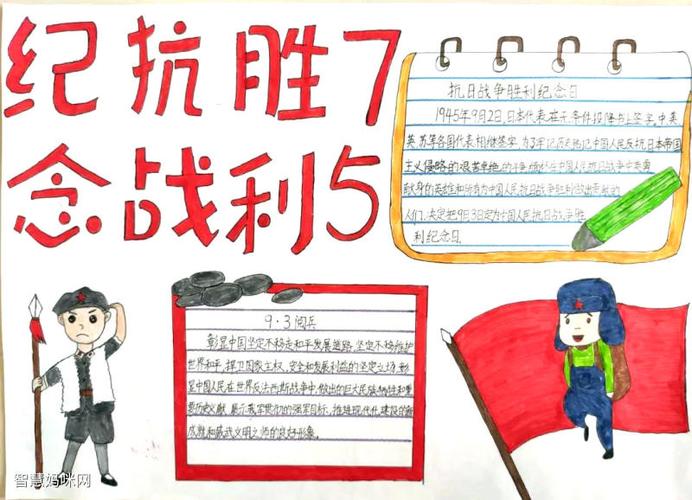 纪抗胜7
念战利5
抗日战争胜利纪念日
1945年9月2日,日本代表在无条件投降书上签字,中、美
英、苏等各国代表相继签字,为了牢记历史,铭记中国人民反抗日本帝国
主义侵略的艰苦卓绝的斗争,缅怀在中国人民抗日战争中英勇
献身的英雄和所有为中国人民抗日战争胜利做出贡献的
人们,决定把9月3日定为中国人民抗日战争胜
利纪念日。
9·3阅兵
彰显中国坚定不移走和平发展道路,坚定不移维护
世界和平,捍卫国家主权,安全和发展利益的坚定立场,彰
显中国人民在世界反法西斯战争中,做出的巨大民族牺牲和重
要历史贡献,展示我军的强军目标,推进现代化建设的新
成就和威武文明之师的良好形象。
智慧妈咪网